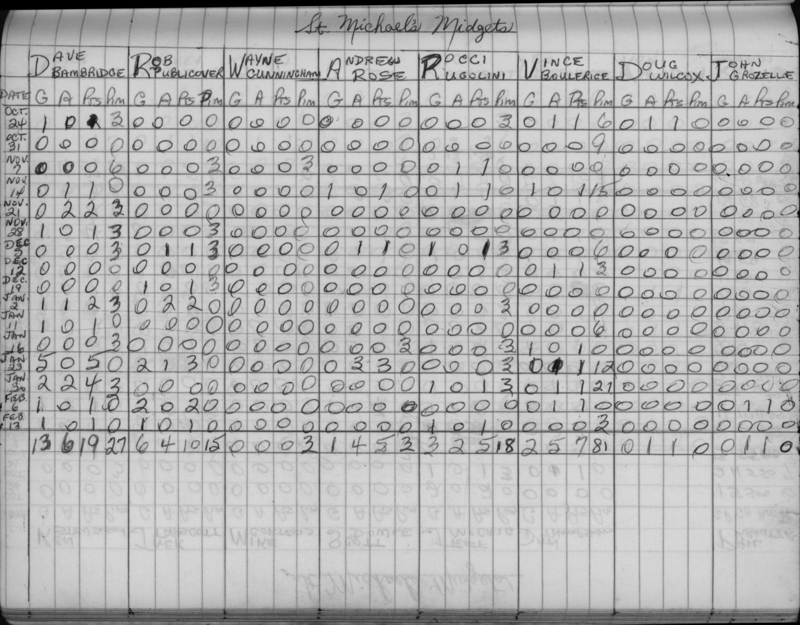 St. Michael's Midgets
DAVE BAMBRIDGE ROB PUBLICOVER WAYNE CUNNINGHAM ANDREW ROSE ROCCI UGOLINI VINCE BOULERICE DOUG WILCOX JOHN GROZELLE
DATE G A Pts Pim G A Pts Pim G A Pts Pim G A Pts Pim G A Pts Pim G A Pts Pim G A Pts Pim G A Pts Pim
OCT. 24 1 0 1 3 0 0 0 0 0 0 0 0 0 0 0 0 0 0 0 3 0 1 1 6 0 1 1 0 0 0 0 0
OCT. 31 0 0 0 0 0 0 0 0 0 0 0 0 0 0 0 0 0 0 0 0 0 0 0 9 0 0 0 0 0 0 0 0
NOV. 0 0 0 6 0 0 0 3 0 0 0 3 0 0 0 0 0 1 1 0 0 0 0 0 0 0 0 0 0 0 0 0
NOV 14 0 1 1 0 0 0 0 3 0 0 0 0 1 0 1 0 0 1 1 0 1 0 1 15 0 0 0 0 0 0 0 0
NOV. 21 0 2 2 3 0 0 0 0 0 0 0 0 0 0 0 0 0 0 0 0 0 0 0 0 0 0 0 0 0 0 0 0
NOV. 28 1 0 1 3 0 0 0 3 0 0 0 0 0 0 0 0 0 0 0 0 0 0 0 0 0 0 0 0 0 0 0 0
DEC 5 0 0 0 3 0 1 1 3 0 0 0 0 0 1 1 0 1 0 1 3 0 0 0 6 0 0 0 0 0 0 0 0
DEC 12 0 0 0 0 0 0 0 0 0 0 0 0 0 0 0 0 0 0 0 0 0 1 1 3 0 0 0 0 0 0 0 0
DEC. 19 0 0 0 0 1 0 1 3 0 0 0 0 0 0 0 0 0 0 0 0 0 0 0 0 0 0 0 0 0 0 0 0
JAN. 2 1 1 2 3 0 2 2 0 0 0 0 0 0 0 0 0 0 0 0 3 0 0 0 0 0 0 0 0 0 0 0 0
JAN 11 1 0 1 0 0 0 0 0 0 0 0 0 0 0 0 0 0 0 0 0 0 0 0 6 0 0 0 0 0 0 0 0
JAN 16 0 0 0 3 0 0 0 0 0 0 0 0 0 0 0 3 0 0 0 3 1 0 1 0 0 0 0 0 0 0 0 0
JAN 23 5 0 5 0 2 1 3 0 0 0 0 0 0 3 3 0 0 0 0 3 0 1 1 12 0 0 0 0 0 0 0 0
JAN 30 2 2 4 3 0 0 0 0 0 0 0 0 0 0 0 0 1 0 1 3 0 1 1 21 0 0 0 0 0 0 0 0
FEB. 6 1 0 1 0 2 0 2 0 0 0 0 0 0 0 0 0 0 0 0 0 0 1 1 0 0 0 0 0 0 1 1 0
FEB. 13 1 0 1 0 1 0 1 0 0 0 0 0 0 0 0 0 1 0 1 0 0 0 0 3 0 0 0 0 0 0 0 0
13 6 19 27 6 4 10 15 0 0 0 3 1 4 5 3 3 2 5 18 2 5 7 81 0 1 1 0 0 1 1 0